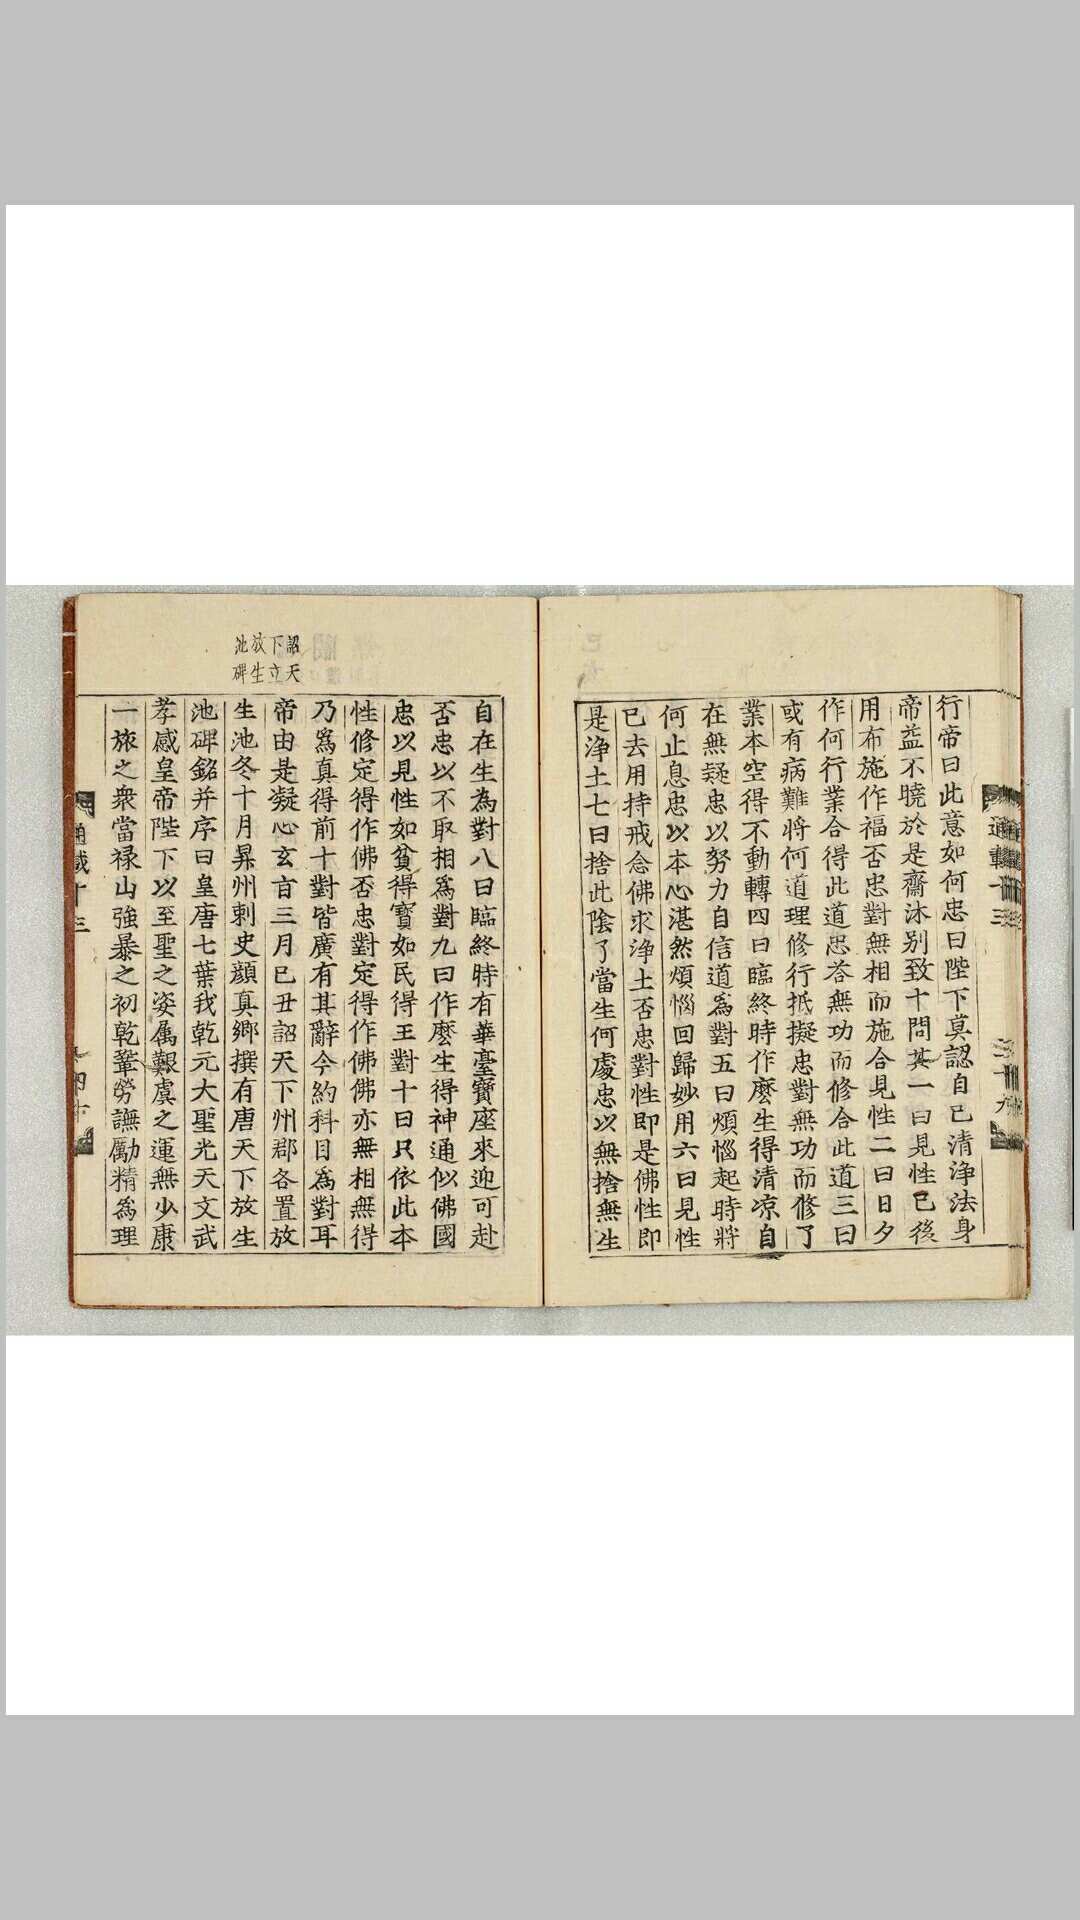 行帝曰此意如何忠曰陛下莫認自己清淨法身
帝益不曉於是齋沐别致十問其一曰見性已後
用布施作福否忠對無相而施合見性二曰日夕
作何行業合得此道忠荅無功而修合此道三曰
或有病難將何道理修行抵擬忠對無功而修了
業本空得不動轉四曰臨終時作麽生得清凉自
在無疑忠以努力自信道爲對五曰煩惱起時將
何止息忠以本心湛然煩惱回歸妙用六曰見性
已去用持戒念佛求淨土否忠對性即是佛性即
是淨土七曰捨此陰了當生何處忠以無捨無生
自在生為對八曰臨終時有華臺寶座來迎可赴
否忠以不取相爲對九曰作麽生得神通似佛國
忠以見性如貧得寶如民得王對十曰只依此本
性修定得作佛否忠對定得作佛佛亦無相無得
乃爲真得前十對皆廣有其辭今約科目爲對耳
帝由是凝心玄旨三月己丑詔天下州郡各置放
生池冬十月昇州刺史顔真卿撰有唐天下放生
池碑銘并序曰皇唐七葉我乾元大聖光天文武
孝感皇帝陛下以至聖之姿属艱虞之運無少康
一旅之衆當禄山強暴之初乾鞏勞謙勵精爲理
詔天
下立
放生
池碑
通載十三
三十九
通載十三
四十